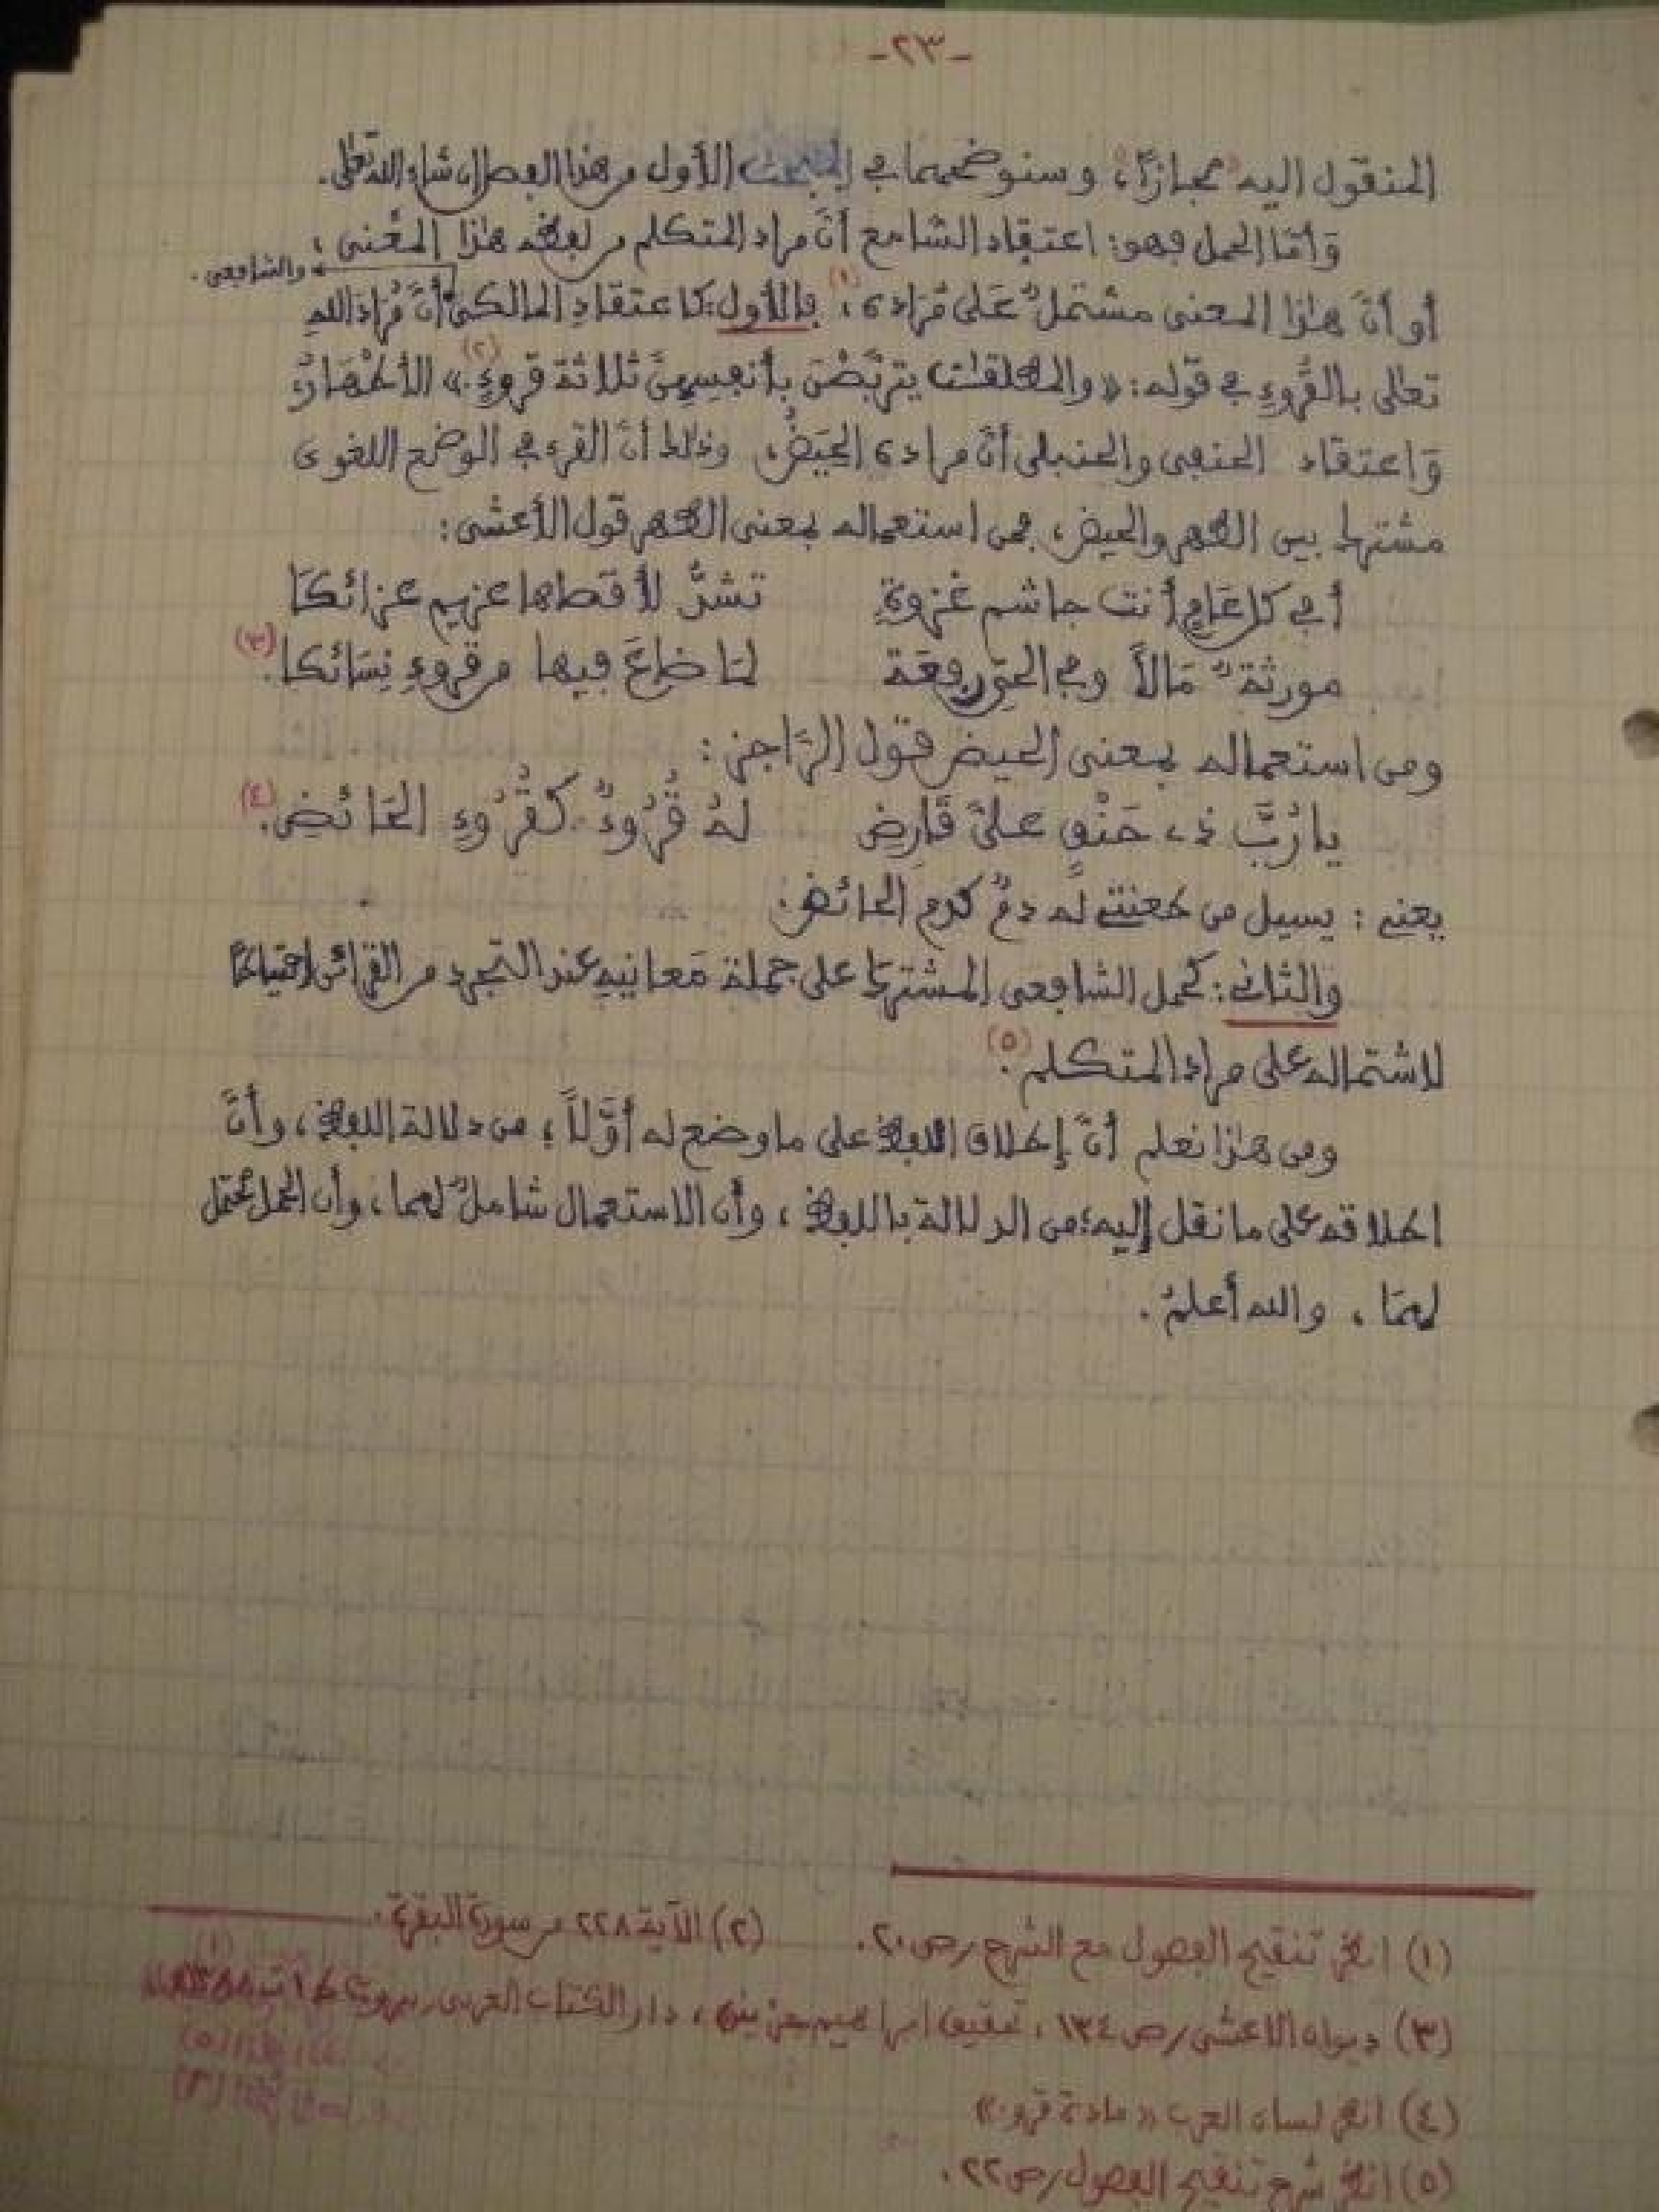 -٢٣-
المنقول اليه مجازًا، وسنوضحهما في المبحث الأول من هذا الفصل إن شاء الله تعالى.
وَأمّا الحمل فهو: اعتقاد السامع أنَّ مراد المتكلم من لفظه هذا المعْنى؛
أو أنَّ هذا المعنى مشتملٌ عَلى مُرَاده، (١) فالأول: كاعتقادِ المالكي والشافعي. أنَّ مُرَادَ اللهِ
تعالى بالقُروءِ في قوله: «والمطلقات يتربَّصْنَ بأنفسِهِنَّ ثلاثة قروءٍ.» (٢) الأطْهَارُ،
وَاعتقاد الحنفي والحنبلي أنَّ مراده الحِيَضُ، وذلك أنَّ القرء في الوضع اللغوى
مشترك بين الطهر والحيض، فمن استعماله بمعنى الطهر قول الأعشى:
أفي كل عَامٍ أنت جاشم غزوةٍ تشدُّ لأقصاها عزيم عزائكَا
مورثةٌ مَالاً وفي الحيّ رفعَة لمَا ضاعَ فيها من قروءِ نِسَائكا. (٣)
ومن استعماله بمعنى الحيض قول الرَّاجز:
يا رُبَّ ذي حَنَقٍ علىَّ قَارِضِ لهُ قُرُوءٌ كقُرُوءِ الحَائضِ. (٤)
يعني: يسيل من طعنته له دمٌ كدمِ الحائض.
والثاني: كحمل الشافعي المشترك على جملة مَعانيهِ عند التجرد من القرائن احتياطًا
لاشتماله على مراد المتكلم. (٥)
ومن هذا نعلم أنَّ إطلاق اللفظ على ما وضع له أوَّلاً؛ من دلالة اللفظ، وأنَّ
اطلاقه على ما نقل إليه؛ من الدلالة باللفظ، وأن الاستعمال شاملٌ لهما، وأن الحمل محتمل
لهمَا، والله أعلمُ.
(١) انظر تنقيح الفصول مع الشرح ص ٢٠. (٢) الآية ٢٢٨ من سورة البقرة.
(٣) ديوان الاعشى ص ١٣٤، تحقيق ابراهيم جزيني، دار الكتاب العربى بيروت ط ١
(٤) انظر لسان العرب «مادة قرء»
(٥) انظر شرح تنقيح الفصول ص ٢٢.